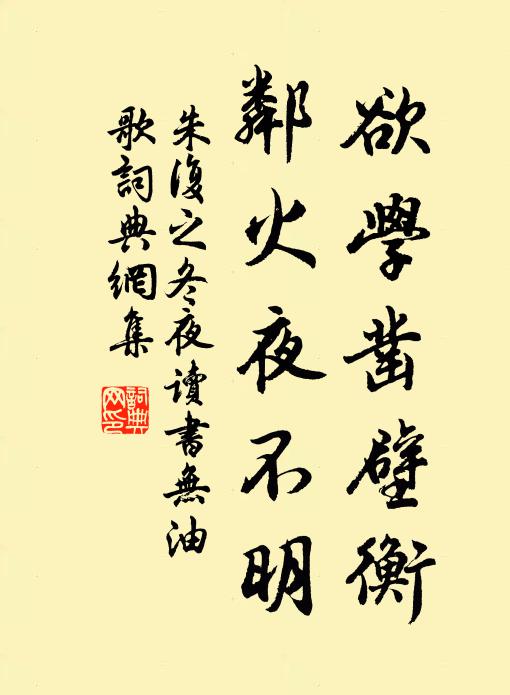 欲學凿壁衡
鄰火夜不明
朱復之冬夜讀書無油
歌詞典網集
詞典网印